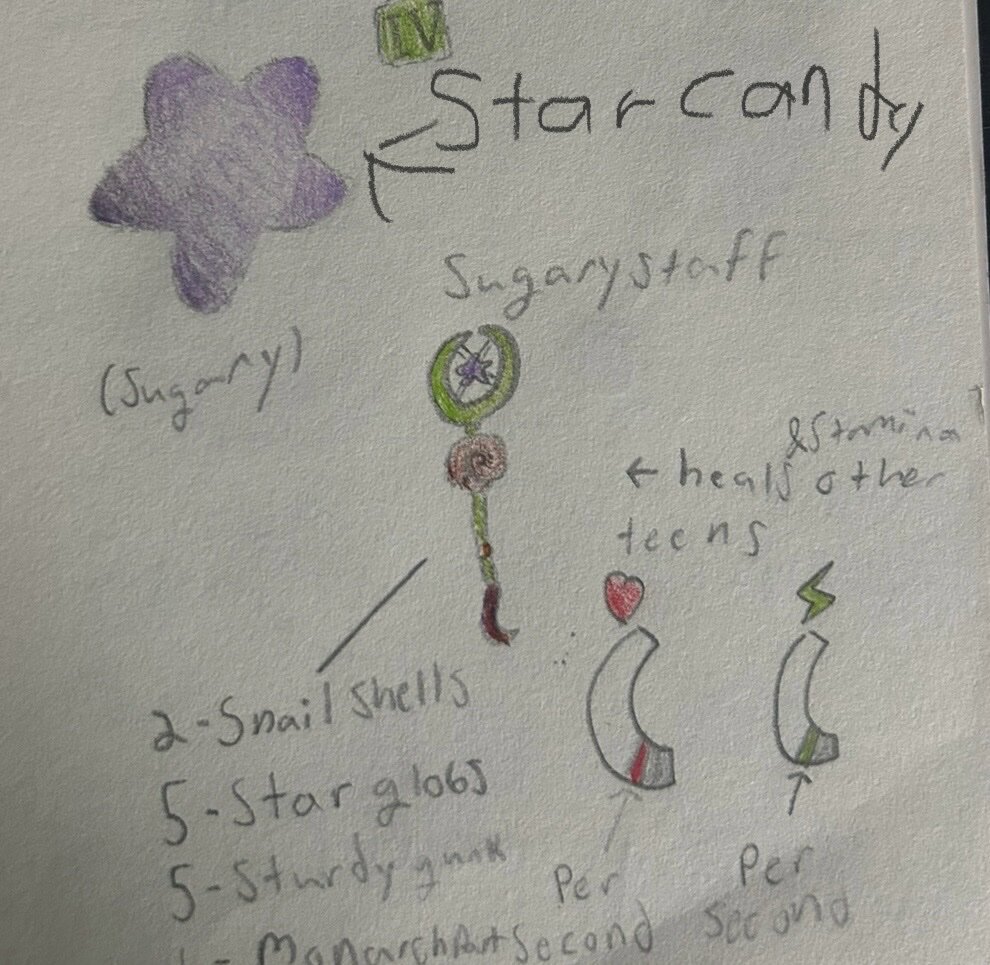 IV
Star candy
Sugary staff
(Sugary)
& Stamina
← heals other
teens
2-Snail shells
5-Star globs
5-Sturdy gunk
Per
second
Per
second